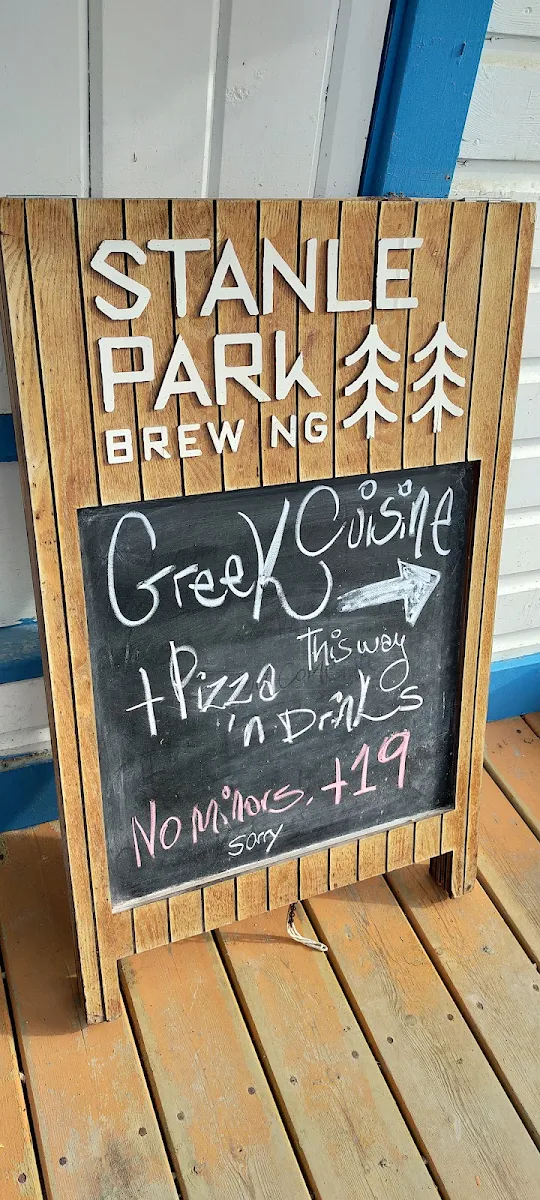 STANLE
PARK
BREW NG
Greek Cuisine
This way
+ Pizza
'n Drinks
No Minors. +19
sorry